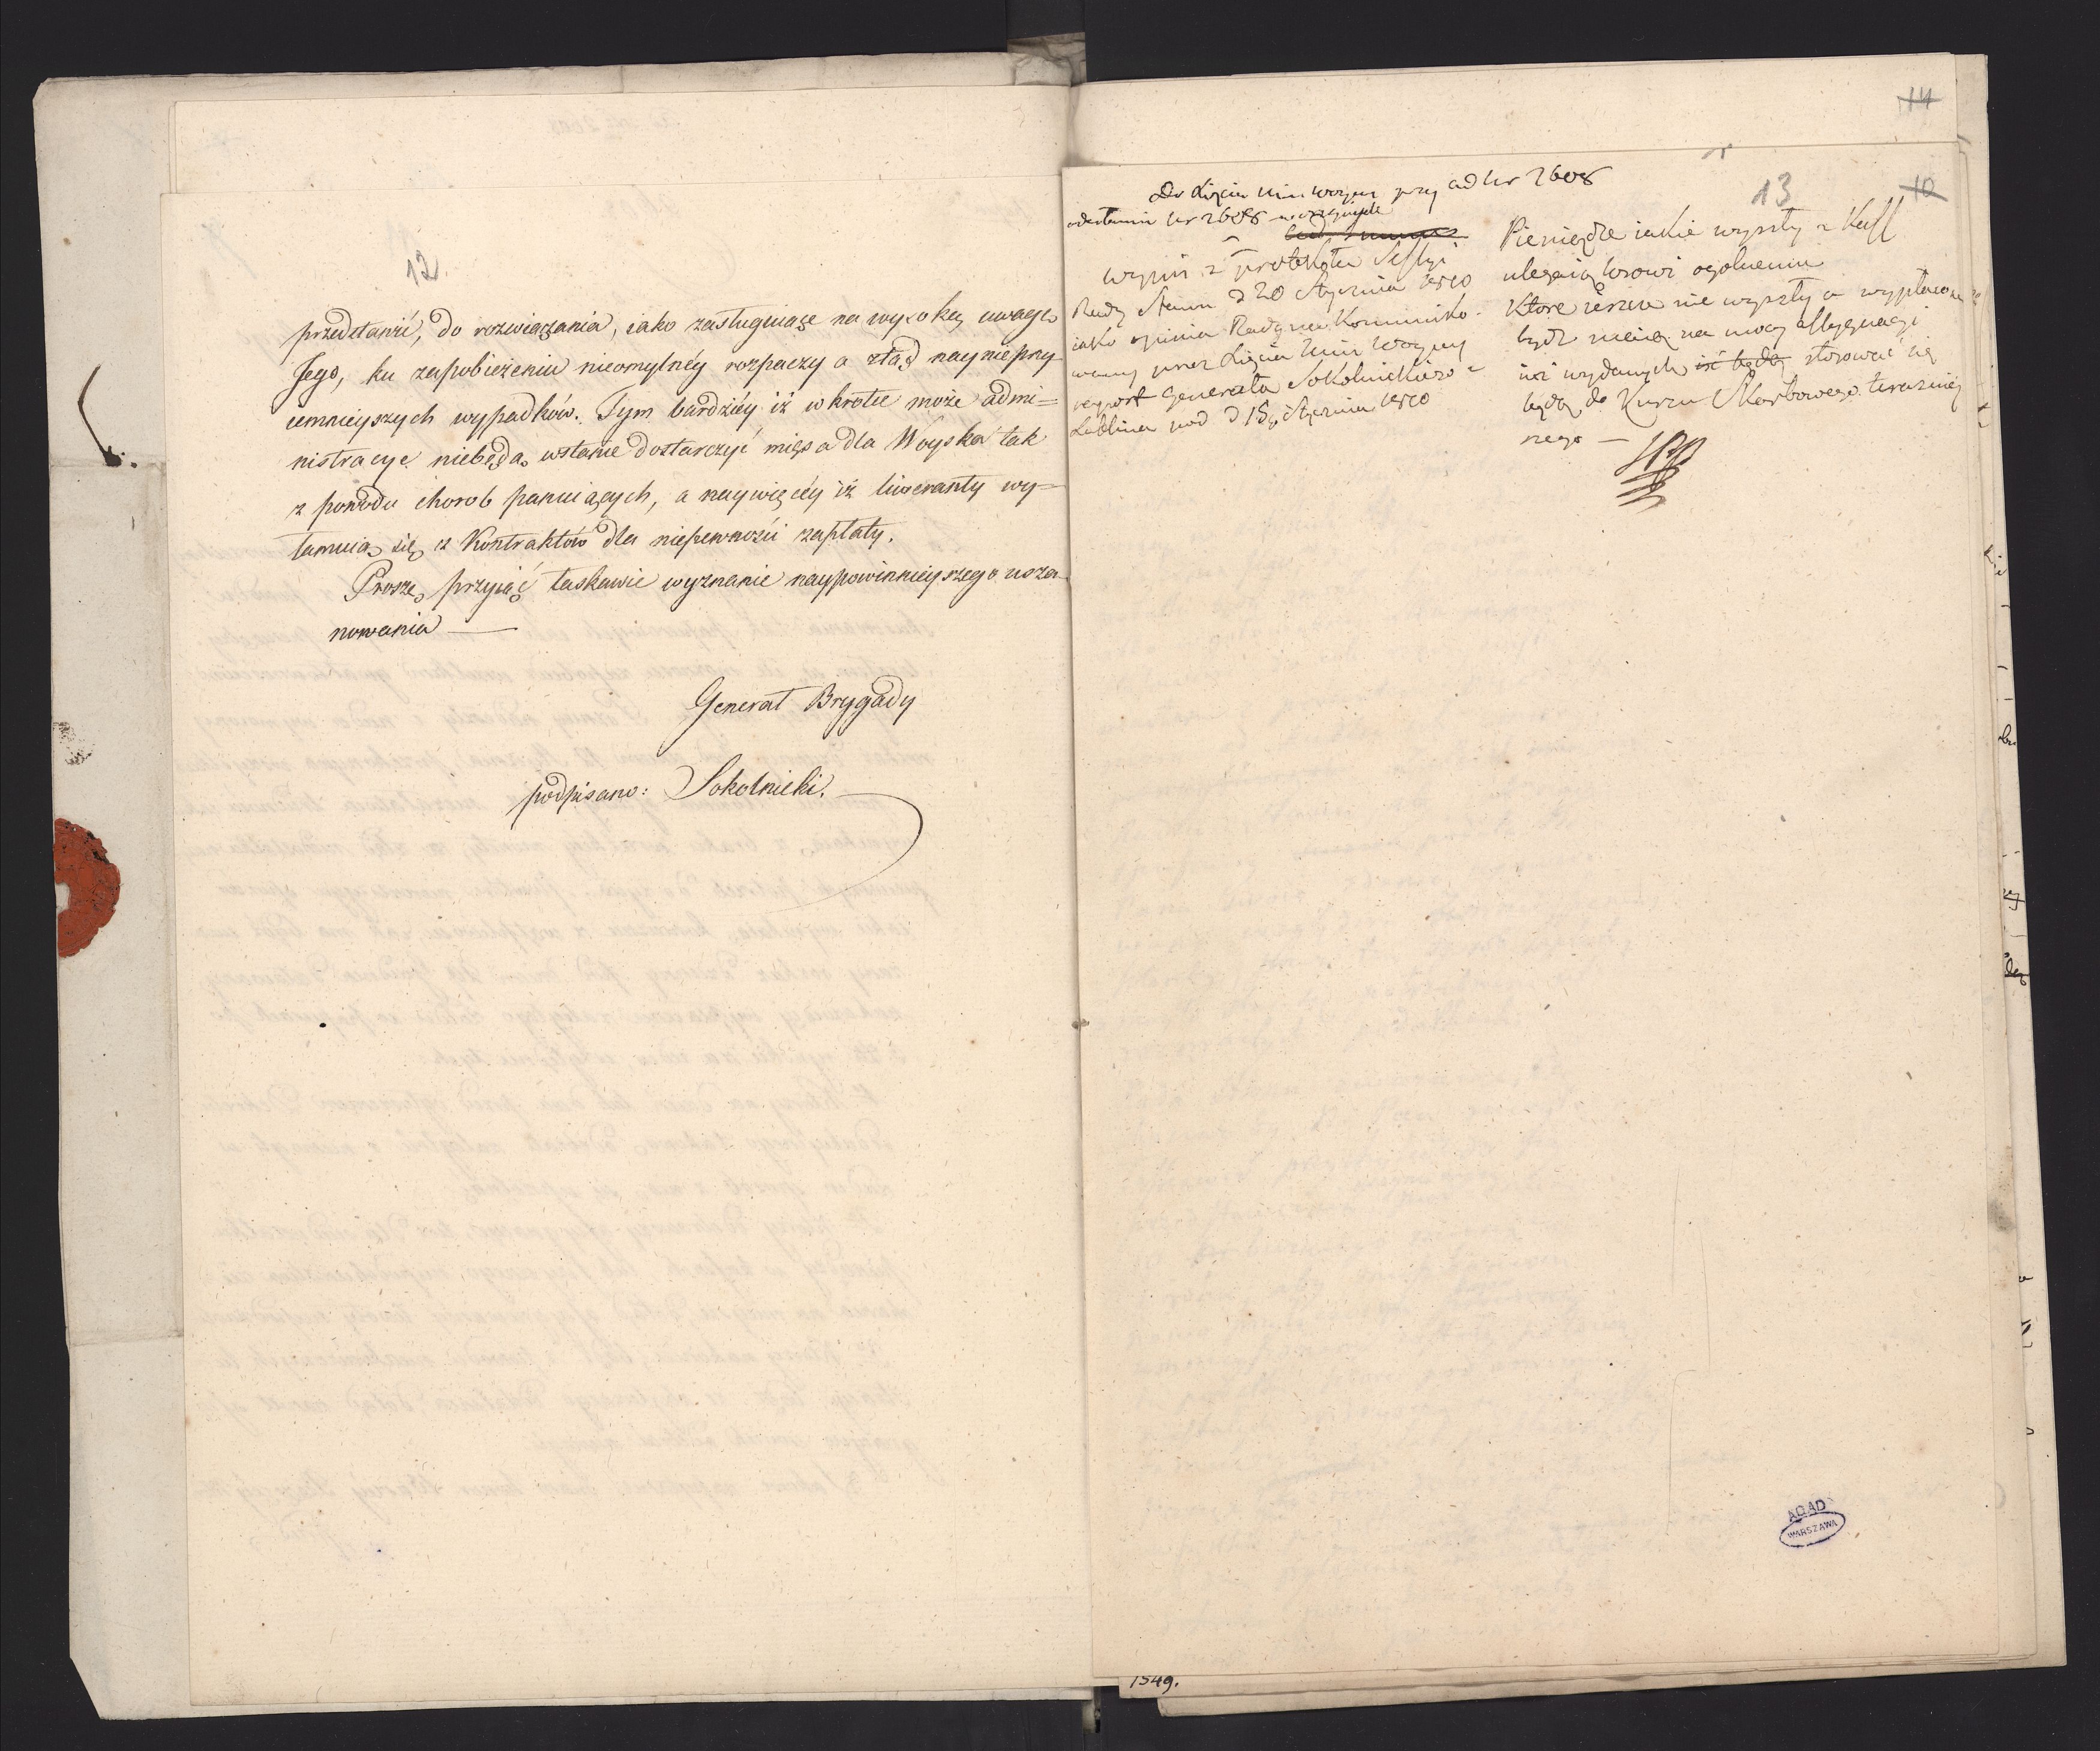 12
przedstawić, do rozwiązania, iako zasługuiące na wysoką uwagę
Jego, ku zapobieżeniu nieomylnéy rozpaczy a ztąd naynieprzy-
iemnieyszych wypadków. Tym bardziéy iż wkrotce może admi=
nistracye niebędą wstanie dostarczyć mięsa dla Woyska tak
z powodu chorob panuiących, a naywięcéy iż liweranty wy=
łamuią się z Kontraktów dla niepewności zapłaty.
Proszę przyiąć łaskawie wyznanie naypowinnieyszego usza-
nowania —
Generał Brygady
podpisano: Sokolnicki.
14
13
10
Do Xięcia Min Woyny przy ad Nr 2608
odesłaniu Nr 2608
wypis z protokołu Sessyi
Rady Stanu d 20 Stycznia 1810
iako opinia Rady na Kommuniko-
wany przez Xięcia Min Woyny
rapport Generała Sokolnickiego z
Lublina pod d 15 Stycznia 1810
Pieniądze iakie wyszły z Kass
ulegaią losowi ogolnemu
Ktore ieszcze nie wyszły a wypłacone
bydź maią na mocy assygnacyi
iuż wydanych iść będą stosować się
będą do Kursu Skarbowego teraźniey
szego —
AGAD
WARSZAWA
1549.